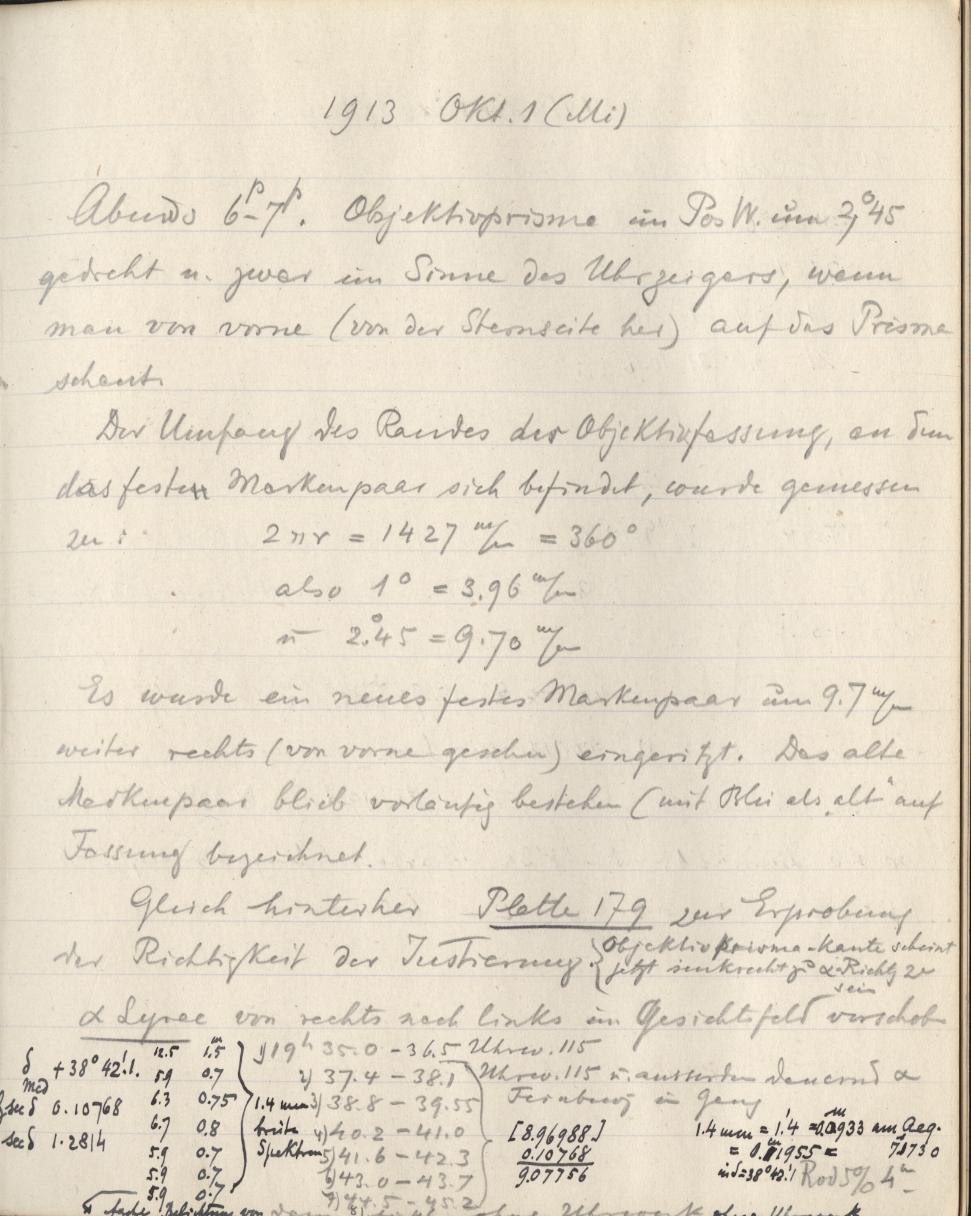 1913 Okt. 1 (Mi)
Abends 6ᵖ-7ᵖ. Objektivprisma im Pos W. um 2,°45
gedreht u. zwar im Sinne des Uhrzeigers, wenn
man von vorne (von der Sternseite her) auf das Prisma
schaut.
Der Umfang des Randes der Objektivfassung, an dem
das feste Markenpaar sich befindet, wurde gemessen
zu: 2πr = 1427 m/m = 360°
also 1° = 3.96 m/m
u 2.°45 = 9.70 m/m
Es wurde ein neues festes Markenpaar um 9.7 m/m
weiter rechts (von vorne gesehen) eingeritzt. Das alte
Markenpaar blieb vorläufig bestehen (mit Blei als „alt“ auf
Fassung bezeichnet.
Gleich hinterher Platte 179 zur Erprobung
der Richtigkeit der Justierung. {Objektivprisma-Kante scheint
jetzt senkrecht zu α-Richtg zu
sein
α Lyrae von rechts nach links im Gesichtsfeld verschob
δ + 38° 42.'1. 12.5 1.5ᵐ 1) 19ʰ 35.0 - 36.5 Uhrw. 115
5.9 0.7 2) 37.4 - 38.1 Uhrw. 115 u. ausserdem dauernd α
sec δ 0.10768 6.3 0.75 1.4 mm 3) 38.8 - 39.55 in Gang
6.7 0.8 breite 4) 40.2 - 41.0 [8.96988] 1.4 mm = 1.4 = 0.0933 am Aeq.
sec δ 1.2814 5.9 0.7 Spektren 5) 41.6 - 42.3 0.10768 = 0.11955 =
5.9 0.7 6) 43.0 - 43.7 9.07756 in δ=38°42.'1 Rod 5% 4ᵐ
5.9 0.7 7) 44.5 - 45.2
Belichtung von ohne Uhrwerk